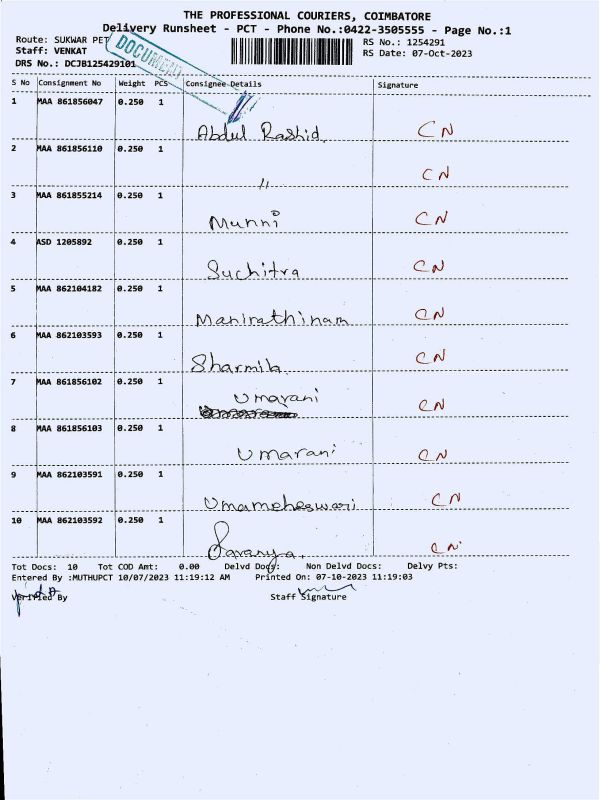 THE PROFESSIONAL COURIERS, COIMBATORE
Delivery Runsheet - PCT - Phone No.:0422-3505555 - Page No.:1
Route: SUKWAR PET
RS No.: 1254291
Staff: VENKAT
RS Date: 07-Oct-2023
DRS No.: DCJB125429101
DOCUMENT
S No Consignment No Weight PCS Consignee Details Signature
1 MAA 861856047 0.250 1
Abdul Rashid CN
2 MAA 861856110 0.250 1
" CN
3 MAA 861855214 0.250 1
Munni CN
4 ASD 1205892 0.250 1
Suchitra CN
5 MAA 862104182 0.250 1
Manirathinam CN
6 MAA 862103593 0.250 1
Sharmila CN
7 MAA 861856102 0.250 1
Umarani CN
8 MAA 861856103 0.250 1
Umarani CN
9 MAA 862103591 0.250 1
Umamaheswari CN
10 MAA 862103592 0.250 1
Saranya. CN
Tot Docs: 10 Tot COD Amt: 0.00 Delvd Docs: Non Delvd Docs: Delvy Pts:
Entered By :MUTHUPCT 10/07/2023 11:19:12 AM Printed On: 07-10-2023 11:19:03
Verified By Staff Signature